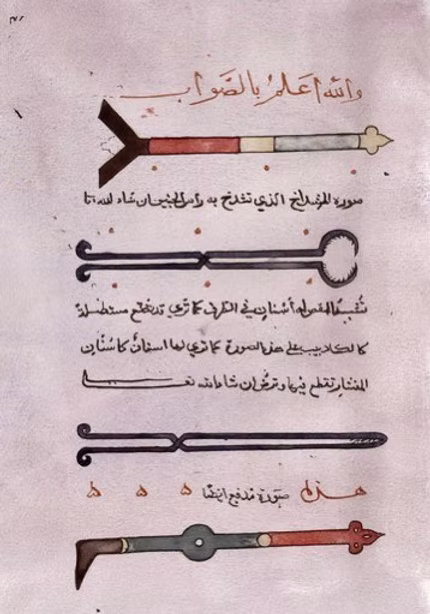 والله اعلم بالصّواب
صورة المشداخ الذي تشدخ به راس الجنين ان شاء الله
تشبه المقص له أسنان في الطرف كما ترى قد يصنع مستطيلة
كالكلاليب على هذه الصورة كما ترى لها اسنان كاسنان
المنشار تقطع فيها وترض ان شاء الله
صورة مدفع ايضا